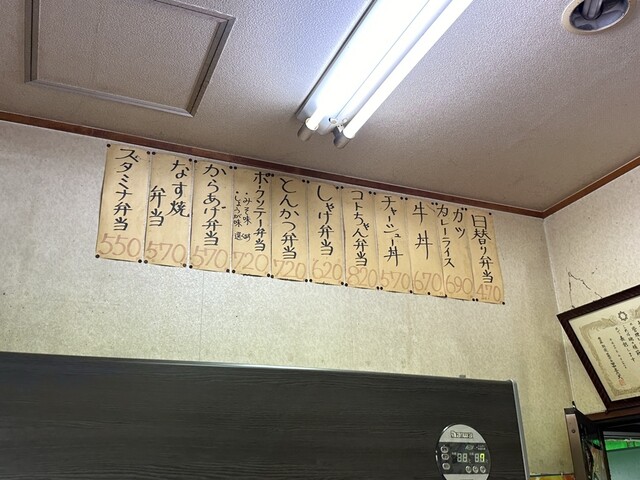 日替り弁当
470
ガッツ
カレーライス
690
牛丼
670
チャーシュー丼
570
コトちゃん弁当
820
しゃけ弁当
620
とんかつ弁当
720
ポークソテー弁当
・みそ味
・しょうが味
720
からあげ弁当
570
なす焼
弁当
570
スタミナ弁当
550